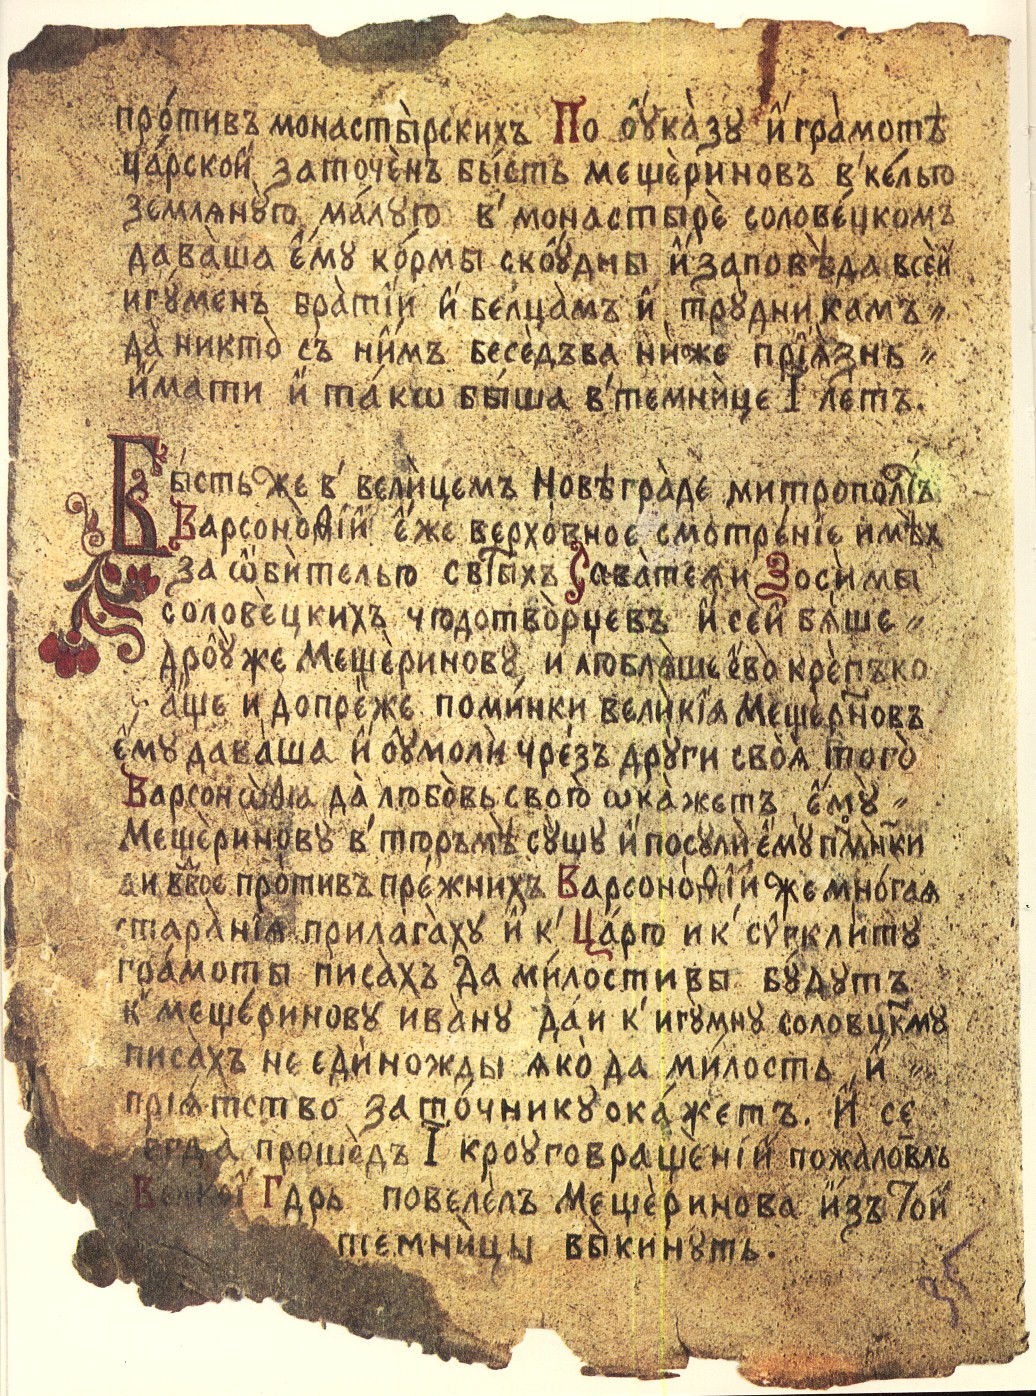 про́тивъ монасты̀рскихъ По оу҆ка̀зу и҆ гра̀мотѣ
ца́рской заточѐнъ бы́сть мещѐриновъ в' ке́лью
земляну̀ю ма́лую в' монастырѐ солове́цкомъ
дава̀ша є҆́му ко́рмы ско́удны и҆ запов̀ѣда всѐй
игу́менъ бра̀тїи и҆ белца̀мъ и҆ тру̀дникамъ〃
да̀ никто̀ съ ни́мъ бесѐдъва нѝже прїя̀знь〃
и҆мати и҆ та́кѡ бы́ша в' темнѝце І лѐтъ.
Бы́сть же в' велѝцемъ Новѣгра̀де митропо́лїтъ
Варсоно̀ѳїй є҆́же верхо́вное смотре́нїе имѣ́х
за ѡ҆бѝтелью свты́хъ Савате́я и Зосѝмы
соловѐцкихъ чюдотво̀рцевъ и҆ сѐй бя̀ше〃
дро́у же Мещѐринову и люблѧ̀ше е҆во̀ крѐпъко
а҆́ще и допрѐже поми́нки велѝкїя Мещернов̀ъ
є҆́му дава̀ша и҆ оу҆моли̇̀ чре́зъ дру́ги своя̀ того̀
Варсонѡ̀ѳїа да̀ любо̀вь свою̀ ѡка̀жетъ є҆́му〃
Мещѐринову в' тюръмѣ̀ су́щу и҆ посули̇̀ є҆му пмнки
а и вдвое про́тивъ прѐжнихъ Варсоно̀ѳїй же мно́гая
стара̀нїя прилага̀ху и҆ к' Ца́рю и к' сѵ́гклиту
гра́моты писа̀хъ да ми́лостивы бу́дутъ
к' меще́ринову ива̀ну да́ и к' игумну соловцкму
писа̀хъ не едѝножды яко̀ да мѝлость и҆〃
прїя́тство зато́чнику ока́жетъ. И҆ се
егда̀ прошѐдъ І кроуговраще́нїй пожаловлъ
Велкої Гдрь повелѐлъ Мещѐринова и҆зъ той
темнѝцы вы́кинуть.